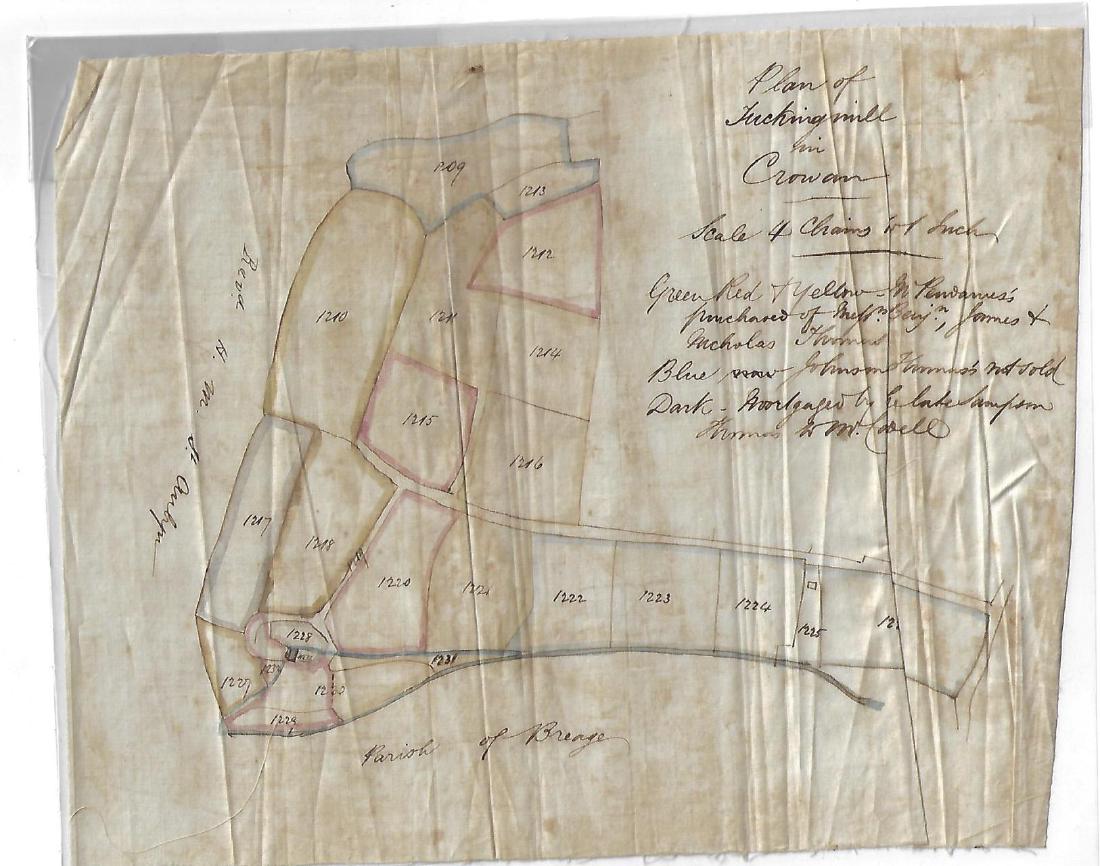 Plan of
Tuckingmill
in
Crowan
Scale 4 Chains to 1 Inch
Green Red & Yellow - Mr Pendarves's
purchased of Messrs. Benjn., James &
Nicholas Thomas
Blue now Johnson Thomas's not sold
Dark - Mortgaged by the late Sampson
Thomas to Mr.
Revd. H. M. St Aubyn
1209
1213
1212
1210
1211
1214
1215
1216
1217
1218
1219
1220
1221
1222
1223
1224
1225
1228
1231
1227
1230
1229
Parish of Breage